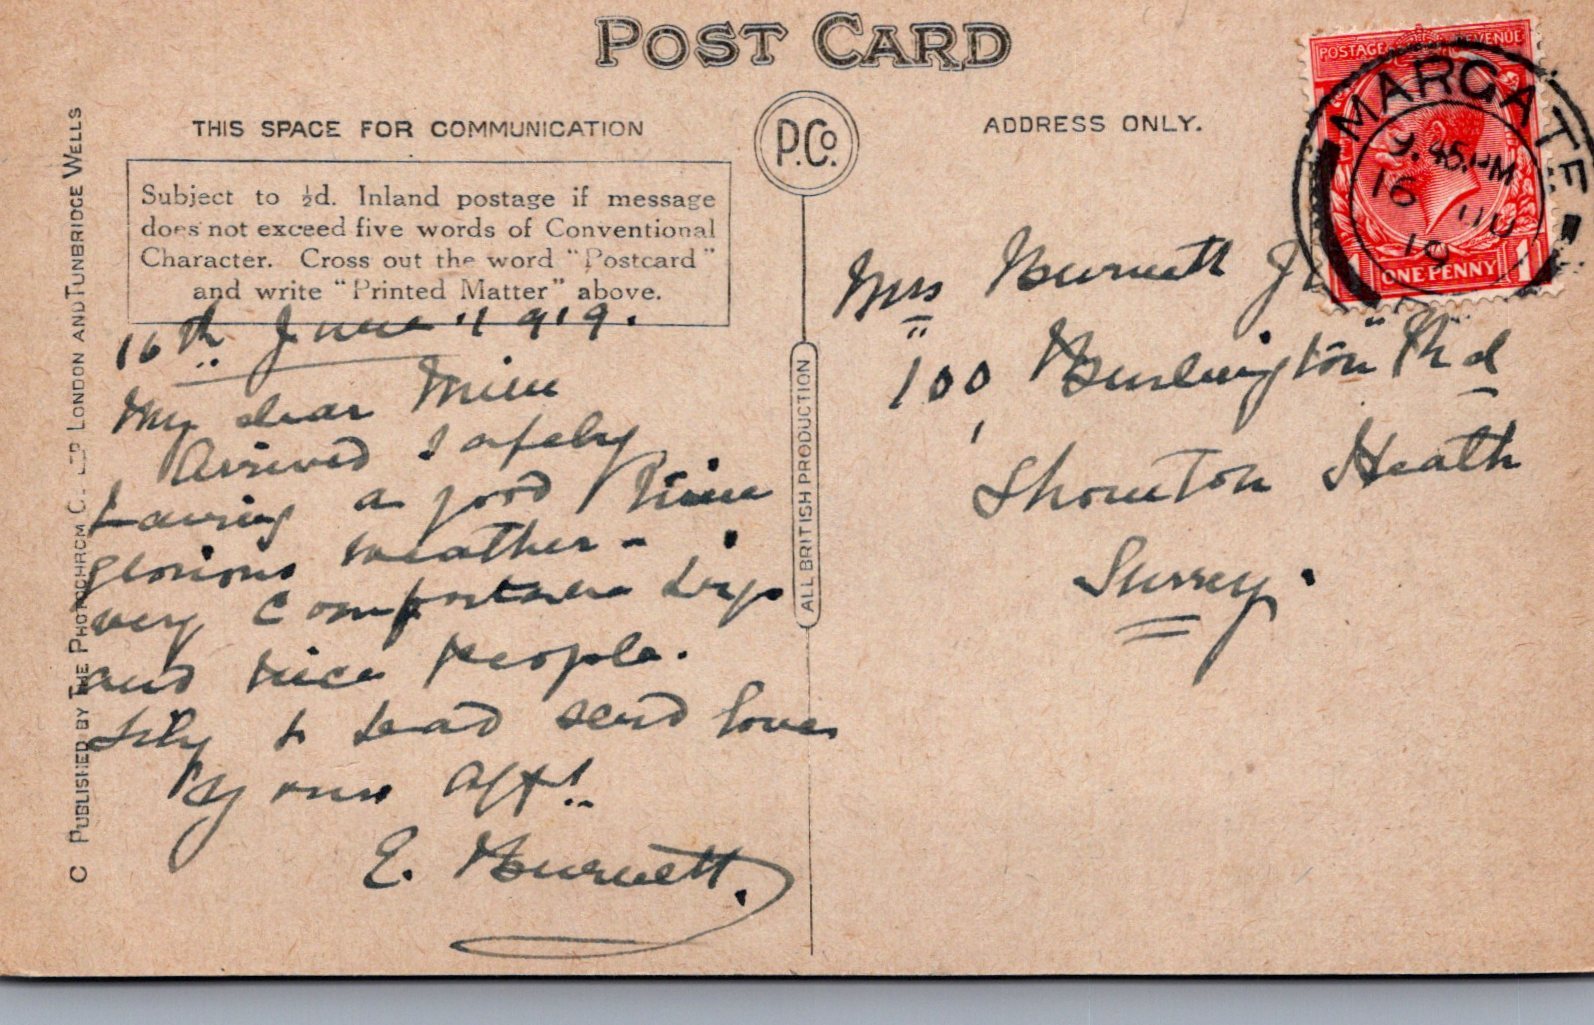 POST CARD
THIS SPACE FOR COMMUNICATION
P.Co.
ADDRESS ONLY.
Subject to ½d. Inland postage if message
does not exceed five words of Conventional
Character. Cross out the word "Postcard"
and write "Printed Matter" above.
16th June 1919.
My dear
Arrived safely
having a good time
glorious weather -
very comfortable digs
and nice people.
Lily & send love
Yours afft
E. Burnett.
Mrs Burnett
100 Burlington Rd
Thornton Heath
Surrey.
POSTAGE REVENUE
1 ONE PENNY 1
MARGATE
9.45 PM
16 JU
19
ALL BRITISH PRODUCTION
C PUBLISHED BY THE PHOTOCHROM Co. LTD LONDON AND TUNBRIDGE WELLS